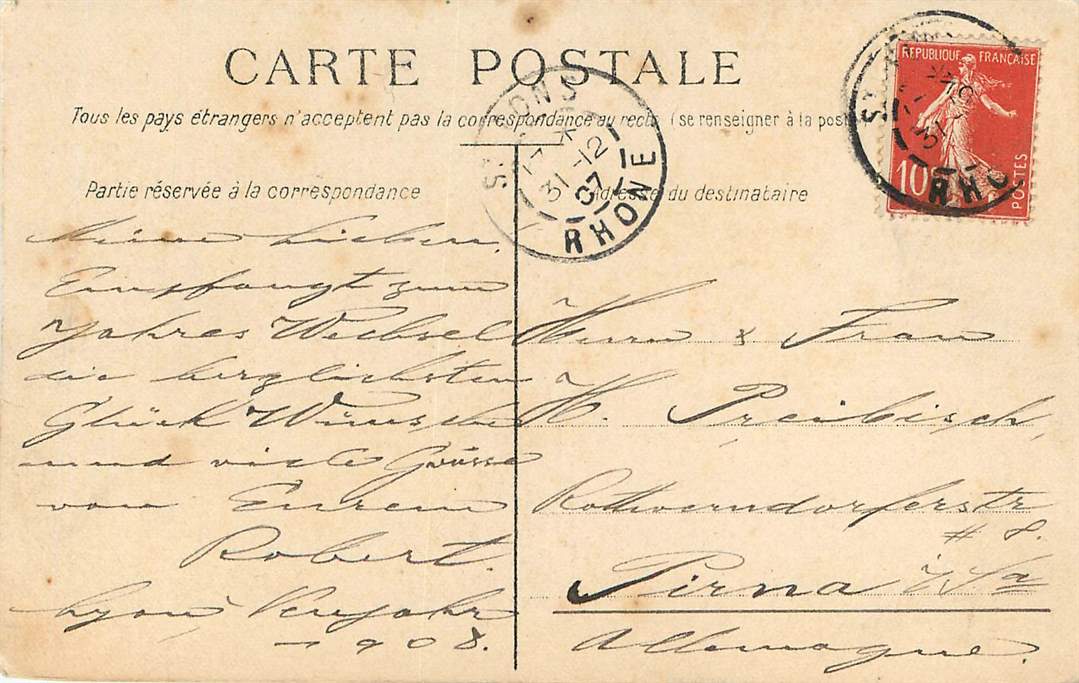 CARTE POSTALE
Tous les pays étrangers n'acceptent pas la correspondance au recto (se renseigner à la poste
Partie réservée à la correspondance
Adresse du destinataire
REPUBLIQUE FRANÇAISE
10
POSTES
31-12
07
RHONE
31-12
RHO
Meine Lieben,
Empfangt zum
Jahres Wechsel
die herzlichsten
Glück Wünsche
und viele Grüsse
von Eurem
Robert.
Lyon, Neujahr
1908.
Herrn & Frau
H. Preibisch,
Rottwerndorferstr
# 8.
Pirna i/Sa
Allemagne.